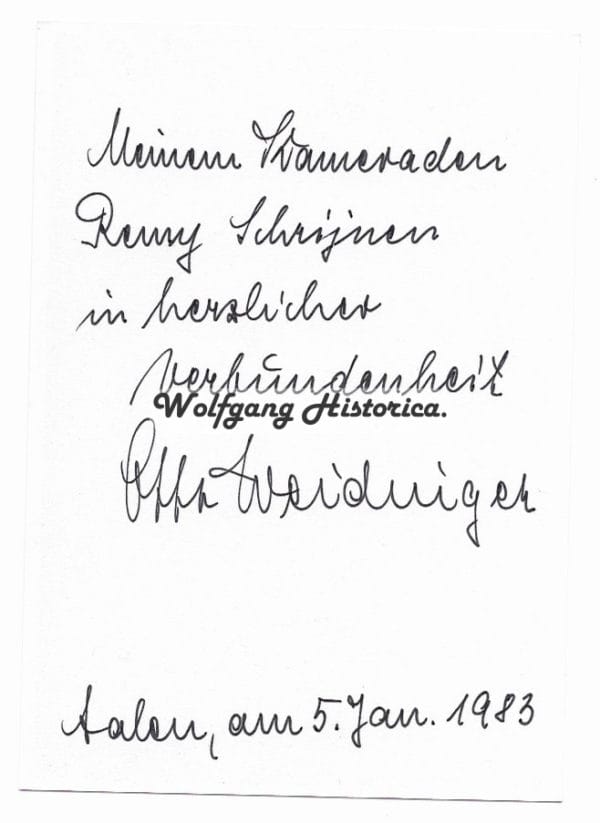 Meinem Kameraden
Remy Schrijnen
in herzlicher
Verbundenheit
Wolfgang Historica.
Otto Weidinger
Aalen, am 5. Jan. 1983